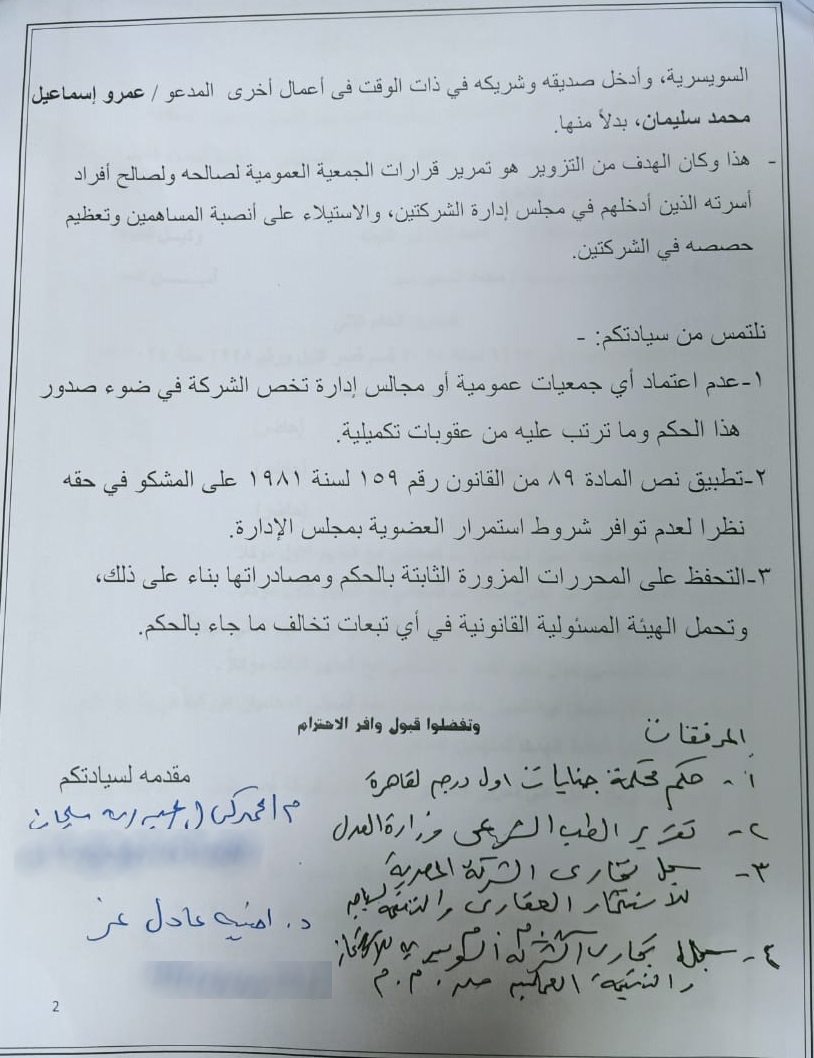 السويسرية، وأدخل صديقه وشريكه في ذات الوقت فى أعمال أخرى المدعو / عمرو إسماعيل
محمد سليمان، بدلاً منها.
- هذا وكان الهدف من التزوير هو تمرير قرارات الجمعية العمومية لصالحه ولصالح أفراد
أسرته الذين أدخلهم في مجلس إدارة الشركتين، والاستيلاء على أنصبة المساهمين وتعظيم
حصصه في الشركتين.
نلتمس من سيادتكم: -
١-عدم اعتماد أي جمعيات عمومية أو مجالس إدارة تخص الشركة في ضوء صدور
هذا الحكم وما ترتب عليه من عقوبات تكميلية.
٢-تطبيق نص المادة ٨٩ من القانون رقم ١٥٩ لسنة ١٩٨١ على المشكو في حقه
نظرا لعدم توافر شروط استمرار العضوية بمجلس الإدارة.
٣-التحفظ على المحررات المزورة الثابتة بالحكم ومصادراتها بناء على ذلك،
وتحمل الهيئة المسئولية القانونية في أي تبعات تخالف ما جاء بالحكم.
وتفضلوا قبول وافر الاحترام
المرفقات
١- حكم محكمة جنايات اول درجة لقاهرة
٢- تقرير الطب الشرعى وزارة العدل
٣- سجل تجارى الشركة المصرية
للاستثمار العقارى والتنمية
٤- سجل تجارى الشركة
والتنمية العمرانية ش.م.م
مقدمه لسيادتكم
د. امنيه عادل عز
2